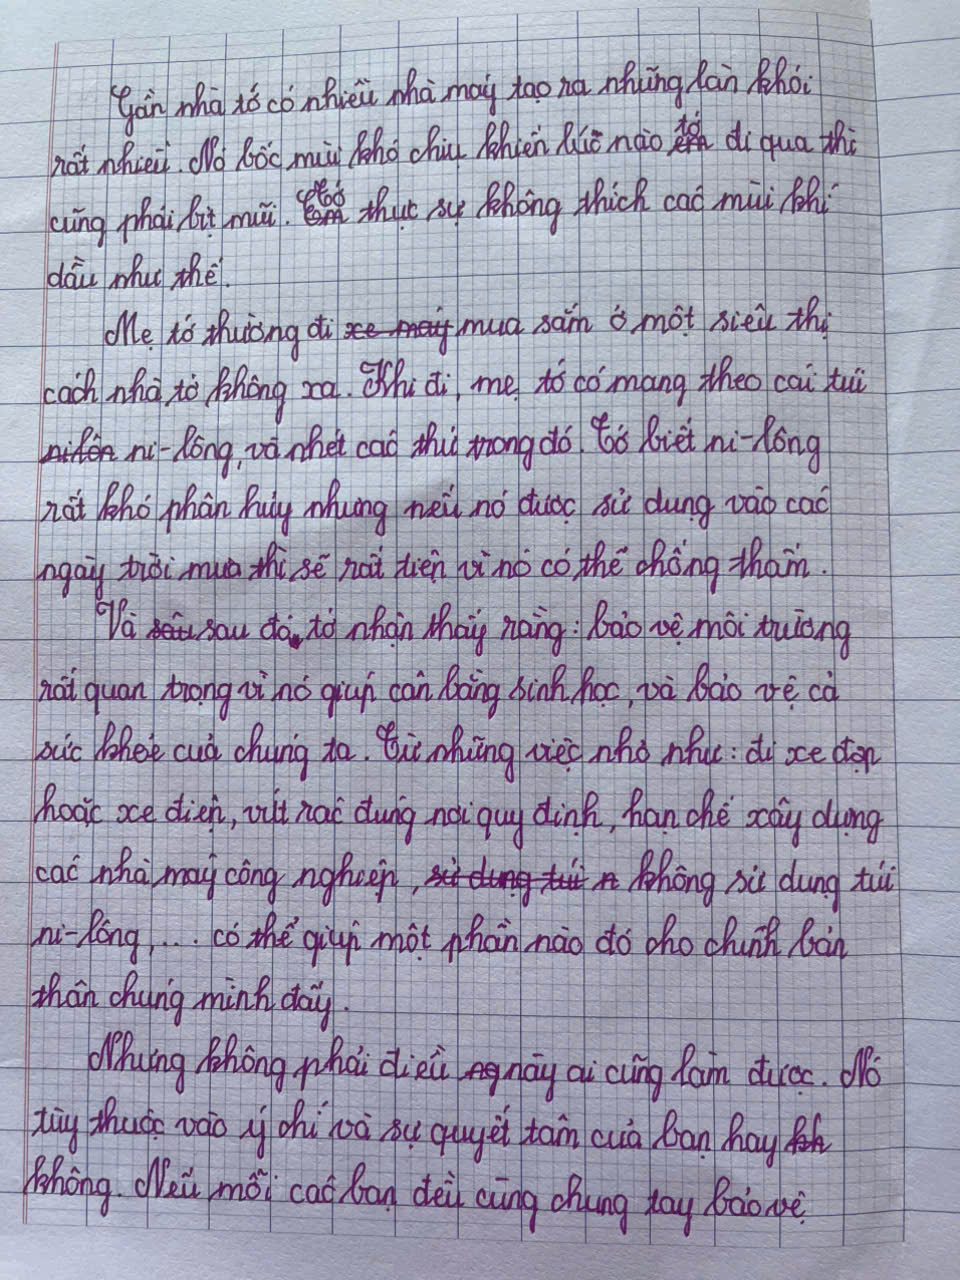 Gần nhà tớ có nhiều nhà máy tạo ra những làn khói
rất nhiều. Nó bốc mùi khó chịu khiến lúc nào tớ đi qua thì
cũng phải bịt mũi. Tớ thực sự không thích các mùi khí
dầu như thế.
Mẹ tớ thường đi xe máy mua sắm ở một siêu thị
cách nhà tớ không xa. Khi đi, mẹ tớ có mang theo cái túi
nilôn ni-lông, và nhét các thứ trong đó. Tớ biết ni-lông
rất khó phân hủy nhưng nếu nó được sử dụng vào các
ngày trời mưa thì sẽ rất tiện vì nó có thể chống thấm.
Và sau đó, tớ nhận thấy rằng: bảo vệ môi trường
rất quan trọng vì nó giúp cân bằng sinh học, và bảo vệ cả
sức khoẻ của chúng ta. Từ những việc nhỏ như: đi xe đạp
hoặc xe điện, vứt rác đúng nơi quy định, hạn chế xây dựng
các nhà máy công nghiệp, sử dụng túi n không sử dụng túi
ni-lông,... có thể giúp một phần nào đó cho chính bản
thân chúng mình đấy.
Nhưng không phải điều ng này ai cũng làm được. Nó
tùy thuộc vào ý chí và sự quyết tâm của bạn hay kh
không. Nếu mỗi các bạn đều cùng chung tay bảo vệ